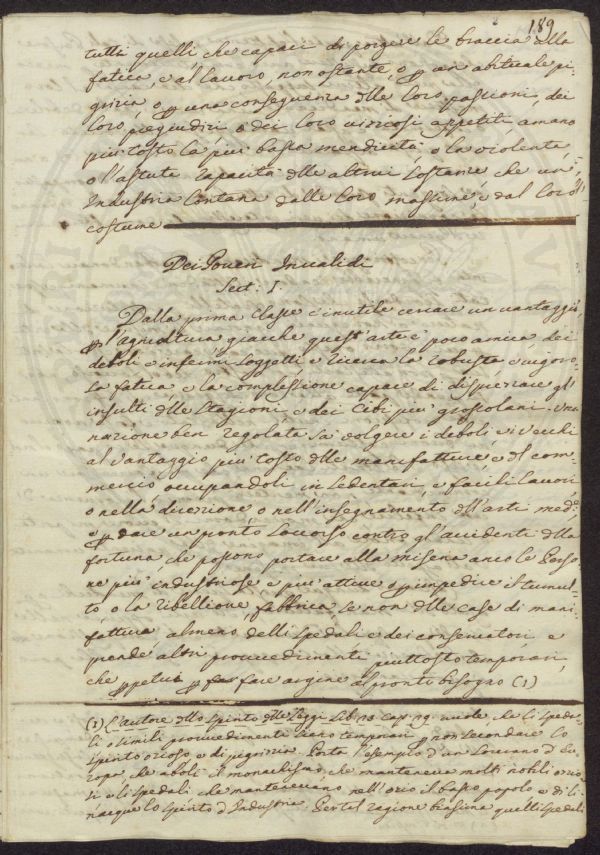 189
tutti quelli, che capaci di porgere le braccia alla
fatica, e al lavoro, non ostante, o p un abituale pi-
grizia, o p una conseguenza dlle loro passioni, dei
loro pregiudizi o dei loro viziosi appetiti amano
piu' tosto la piu' bassa mendicità, o la violenta,
o l'astuta rapacità dlle altrui sostanze che un'
Industria lontana dalle loro massime e dal loro
costume
Dei Poveri Invalidi
Sect: I.
Dalla prima Classe è inutile cercare un vantaggio
p l'agricoltura giacche quest'arte è poco amica dei
deboli e infermi soggetti, e ricerca la robusta e vigoro-
sa fatica e la complessione capace di disprezzare gl'
insulti dlle Stagioni e dei Cibi piu' grossolani. Una
nazione ben regolata sa volgere i deboli, e i vecchi
al vantaggio piu' tosto dlle manifatture, e dl com-
mercio, occupandoli in sedentari, e facili lavori
o nella direzione o nell'insegnamento dll'arti med:e
e p dare un pronto soccorso contro gl'accidenti dlla
fortuna, che possono portare alla miseria anco le Perso-
ne piu' industriose, e piu' attive o p impedire il tumul-
to o la ribellione, fabbrica se non dlle case di mani-
fattura, almeno delli spedali e dei conservatori e
prende altri provvedimenti piuttosto temporari,
che ppetui p far fare argine al pronto bisogno (1)
(1) L'autore dllo Spirito dlle Leggi Lib. 23 Cap. 29. vuole, che li speda-
li o simili provvedimenti siano temporari p non secondare lo
spirito ozioso e di pigrizia. Porta l'esempio d'un Sovrano d'Eu-
ropa, che abolì il monachismo, che manteneva molti nobili ozio-
si e li spedali che mantenevano nell'ozio il basso popolo e di li
nacque lo spirito d'Industria. Per tal ragione biasima quelli spedali